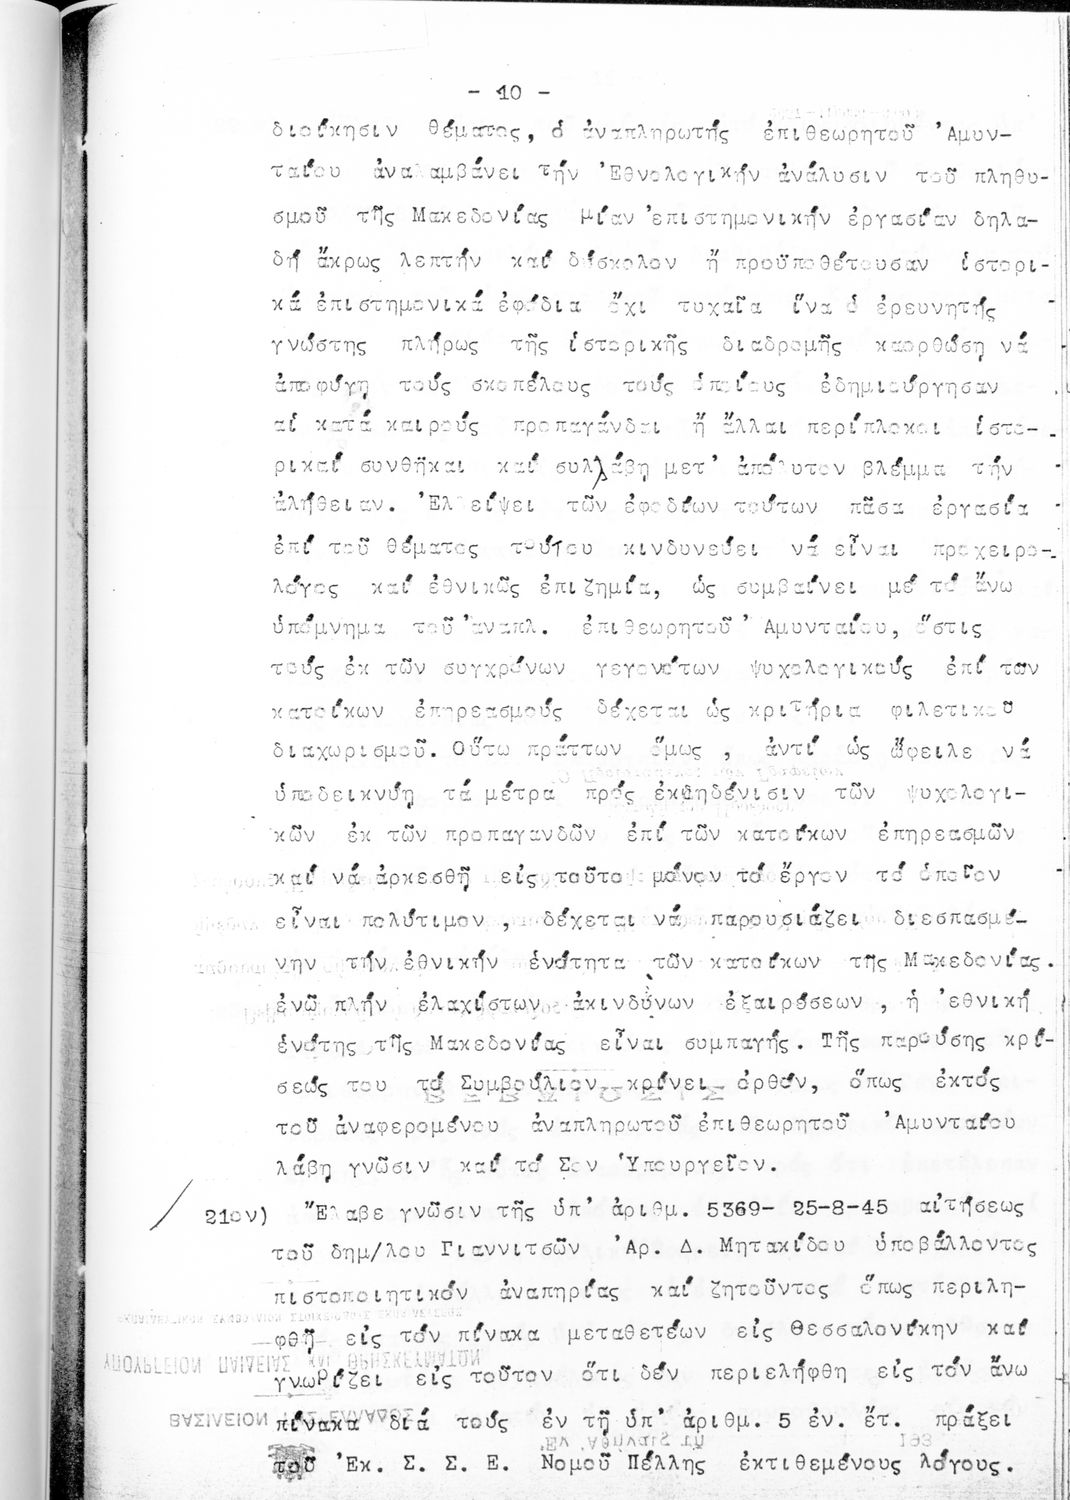 - 10 -
διοίκησιν θέματος, ὁ ἀναπληρωτής ἐπιθεωρητοῦ 'Αμυν-
ταίου ἀναλαμβάνει τήν 'Εθνολογικήν ἀνάλυσιν τοῦ πληθυ-
σμοῦ τῆς Μακεδονίας μίαν 'επιστημονικήν ἐργασίαν δηλα-
δή ἄκρως λεπτήν καί δύσκολον ἥ προϋποθέτουσαν ἱστορι-
κά ἐπιστημονικά ἐφόδια ὄχι τυχαῖα ἵνα ὁ ἐρευνητής
γνώστης πλήρως τῆς ἱστορικῆς διαδρομῆς καορθώση νά
ἀποφύγη τούς σκοπέλους τούς ὁποίους ἐδημιούργησαν
αἱ κατά καιρούς προπαγάνδαι ἤ ἄλλαι περίπλοκοι ἱστο-
ρικαί συνθῆκαι καί συλλάβη μετ' ἀπόλυτον βλέμμα τήν
ἀλήθειαν. 'Ελλείψει τῶν ἐφοδίων τούτων πᾶσα ἐργασία
ἐπί τοῦ θέματος τούτου κινδυνεύει νά εἶναι προχειρο-
λόγος καί ἐθνικῶς ἐπιζημία, ὡς συμβαίνει μέ τό ἄνω
ὑπόμνημα τοῦ 'αναπλ. ἐπιθεωρητοῦ 'Αμυνταίου, ὅστις
τούς ἐκ τῶν συγχρόνων γεγονότων ψυχολογικούς ἐπί των
κατοίκων ἐπηρεασμούς δέχεται ὡς κριτήρια φιλετικοῦ
διαχωρισμοῦ. Οὕτω πράττων ὅμως , ἀντί ὡς ὤφειλε νά
ὑποδεικνύη τά μέτρα πρός ἐκμηδένισιν τῶν ψυχολογι-
κῶν ἐκ τῶν προπαγανδῶν ἐπί τῶν κατοίκων ἐπηρεασμῶν
καί νά ἀρκεσθῆ εἰς τοῦτο μόνον τό ἔργον τό ὁποῖον
εἶναι πολύτιμον , δέχεται νά παρουσιάζει διεσπασμέ-
νην τήν ἐθνικήν ἑνότητα τῶν κατοίκων τῆς Μακεδονίας.
ἐνῶ πλήν ἐλαχίστων ἀκινδύνων ἐξαιρέσεων , ἡ 'εθνική
ἑνότης τῆς Μακεδονίας εἶναι συμπαγής. Τῆς παρούσης κρί-
σεώς του τό Συμβούλιον κρίνει ὀρθόν, ὅπως ἐκτός
τοῦ ἀναφερομένου ἀναπληρωτοῦ ἐπιθεωρητοῦ 'Αμυνταίου
λάβη γνῶσιν καί τό Σον 'Υπουργεῖον.
21ον) "Ελαβε γνῶσιν τῆς ὑπ' ἀριθμ. 5369- 25-8-45 αἰτήσεως
τοῦ δημ/λου Γιαννιτσῶν 'Αρ. Δ. Μητακίδου ὑποβάλλοντος
πιστοποιητικόν ἀναπηρίας καί ζητοῦντος ὅπως περιλη-
φθῆ εἰς τόν πίνακα μεταθετέων εἰς Θεσσαλονίκην καί
γνωρίζει εἰς τοῦτον ὅτι δέν περιελήφθη εἰς τόν ἄνω
πίνακα διά τούς ἐν τῇ ὑπ' ἀριθμ. 5 ἐν. ἔτ. πράξει
τοῦ 'Εκ. Σ. Σ. Ε. Νομοῦ Πέλλης ἐκτιθεμένους λόγους.